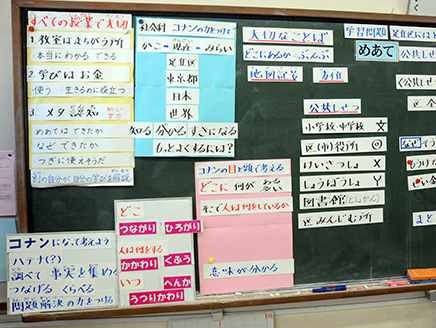 すべての授業で大切
1. 教室はまちがう所
本当にわかる できる
2. 学びは お金
使う 生きるのに役立つ
3. メタ認知
めあては できたか
なぜ できたか
つぎに使えそうだ
別の自分が 自分の学びを解説
社会科 コナンの力をつけて
かこ-現在-みらい
足立区
東京都
日本
世界
知る 分かる すきになる
もっとよくするには?
大切なことば
どこにあるか-ぶんぷ
地図記号
方位
公共しせつ
小学校・中学校
区(市)役所
けいさつしょ
しょうぼうしょ
図書館(としょかん)
区みんじむ所
学習問題
めあて
足立区にはど
公共しせ
コナンになって考えよう
ハテナ(?)
調べて 事実を集め
つなげる くらべる
問題解決の力をつける
どこ
つながり
ひろがり
人は何をする
かかわり
くふう
いつ
へんか
うつりかわり
コナンの目と頭で考える
どこに 何が 多い
そこで人は何をしているか
意味が分かる
なぜ
まと